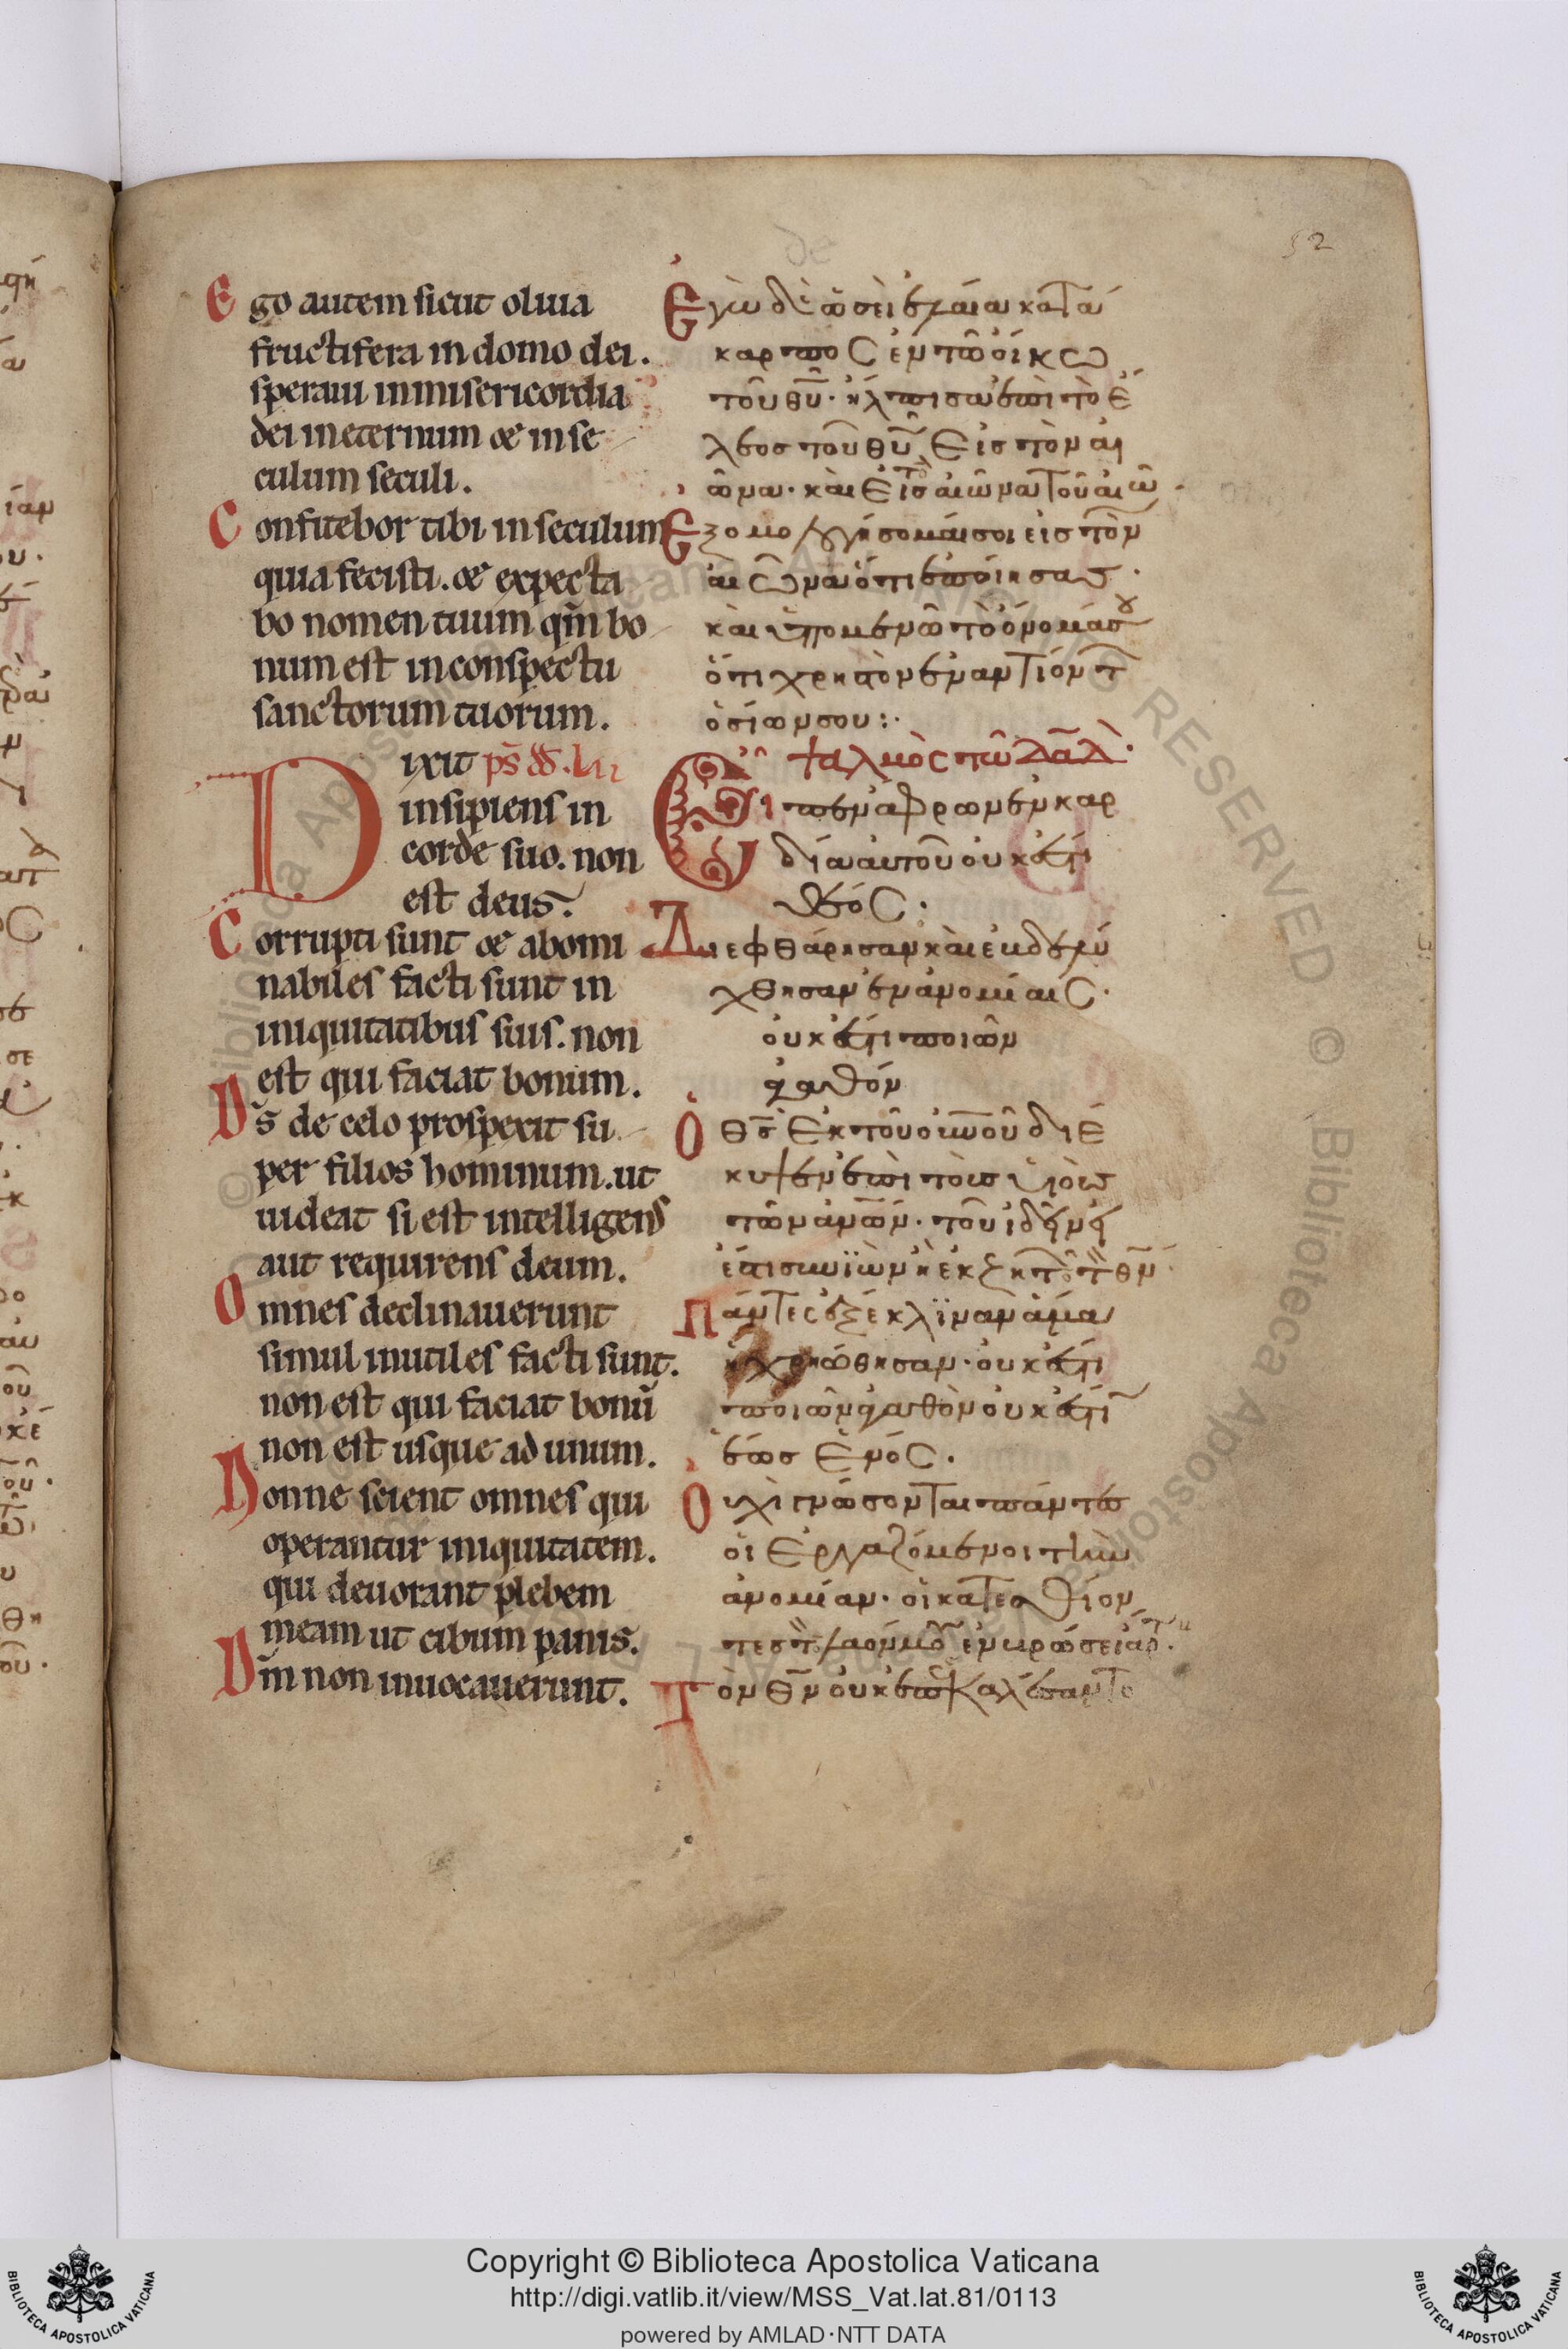 52
Ego autem sicut oliua
fructifera in domo dei.
speraui in misericordia
dei in eternum & in se
culum seculi.
Confitebor tibi in seculum
quia fecisti. & expecta
bo nomen tuum qm̄ bo
num est in conspectu
sanctorum tuorum.
Dixit ps̄ dd̄. lii
insipiens in
corde suo. non
est deus.
Corrupti sunt & abomi
nabiles facti sunt in
iniquitatibus suis. non
est qui faciat bonum.
Ds̄ de celo prospexit su
per filios hominum. ut
uideat si est intelligens
aut requirens deum.
Omnes declinauerunt
simul inutiles facti sunt.
non est qui faciat bonū
non est usque ad unum.
Nonne scient omnes qui
operantur iniquitatem.
qui deuorant plebem
meam ut cibum panis.
Dn̄m non inuocauerunt.
Ἐγὼ δὲ ὡσὲι ἐλάια κατά
καρπος ἐν τῶ ὀίκω
τοῦ θῦ· ἤλπισα ἐπὶ τὸ ἔ
λεος τοῦ θῦ Εἰς τὸν αἰ
ῶνα· καὶ Εἰς τὸ αἰῶνα τοῦ αἰῶ
Ἐξομολογήσομάι σοι εἰς τὸν
ἀιῶνα ὅτι ἐπόιησας·
καὶ ὑπομενῶ τὸ ὄνομά σȣ
ὅτι χρηστὸν ἐναντίον τ
ὁσίων σου:·
ψαλμὸς τῶ δᾱδ·
Εἶπεν ἄφρων ἐν καρ
δία αὐτοῦ οὐκ ἔστι
θεός·
Διεφθάρησαν καὶ ἐβδελύ
χθησαν ἐν ἀνομίαις·
οὐκ ἔστι ποιῶν
ἀγαθόν
Ὁ θς̄ Ἐκ τοῦ οὐνοῦ διέ
κυψεν ἐπὶ τοὺς ὑιοὺς
τῶν ἀνῶν· τοῦ ἰδεῖν εἰ
ἔστι συνϊὼν ἢ ἐκζητῶ τ θν̄·
Πάντες ἐξέκλϊναν ἅμα
ἠχρειώθησαν· οὐκ ἔστι
ποιῶν ἀγαθὸν οὐκ ἔστι
ἕως ἑνός·
Οὐχὶ γνώσονται πάντες
οἱ Ἐργαζόμενοι τὴν
ἀνομίαν· οἱ κατεσθίον
τες τ λαόν μου ἐν βρώσει ἄρτȣ·
Τὸν θν̄ οὐκ ἐπεκαλέσαντο
Copyright © Biblioteca Apostolica Vaticana
http://digi.vatlib.it/view/MSS_Vat.lat.81/0113
powered by AMLAD·NTT DATA
BIBLIOTECA APOSTOLICA VATICANA
BIBLIOTECA APOSTOLICA VATICANA